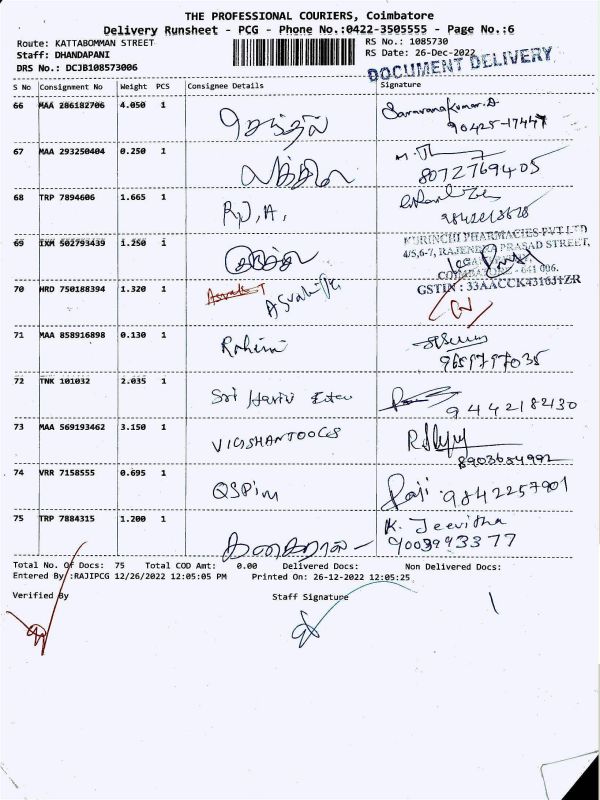 THE PROFESSIONAL COURIERS, Coimbatore
Delivery Runsheet - PCG - Phone No.:0422-3505555 - Page No.:6
Route: KATTABOMMAN STREET
Staff: DHANDAPANI
DRS No.: DCJB108573006
RS No.: 1085730
RS Date: 26-Dec-2022
DOCUMENT DELIVERY
S No Consignment No Weight PCS Consignee Details Signature
66 MAA 286182706 4.050 1 Saravanakumar.A
90425-17447
67 MAA 293250404 0.250 1
8072769405
68 TRP 7894606 1.665 1 RJ, A,
69 IXM 502793439 1.250 1
KURINCHI PHARMACIES PVT LTD
4/5,6-7, RAJENDRA PRASAD STREET,
COIMBATORE - 641 006.
GSTIN : 33AACCK4316J1ZR
70 HRD 750188394 1.320 1
71 MAA 858916898 0.130 1 Rahim
72 TNK 101032 2.035 1 Sri Hari
9442182130
73 MAA 569193462 3.150 1
8903684992
74 VRR 7158555 0.695 1 Raji 9842257901
75 TRP 7884315 1.200 1 K. Jeevitha
9003993377
Total No. Of Docs: 75 Total COD Amt: 0.00 Delivered Docs: Non Delivered Docs:
Entered By :RAJIPCG 12/26/2022 12:05:05 PM Printed On: 26-12-2022 12:05:25
Verified By Staff Signature